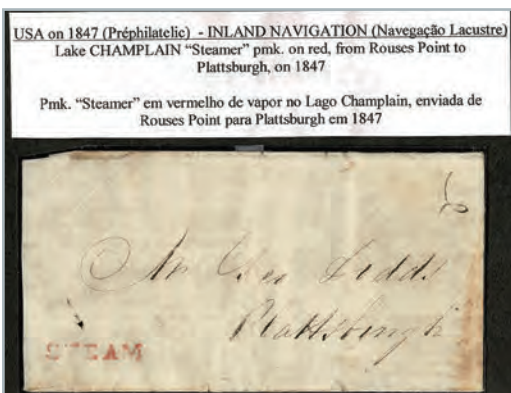 USA on 1847 (Préphilatelic) - INLAND NAVIGATION (Navegação Lacustre)
Lake CHAMPLAIN “Steamer” pmk. on red, from Rouses Point to
Plattsburgh, on 1847
Pmk. “Steamer” em vermelho de vapor no Lago Champlain, enviada de
Rouses Point para Plattsburgh em 1847
Mr Geo Dodds
Plattsburgh
STEAM